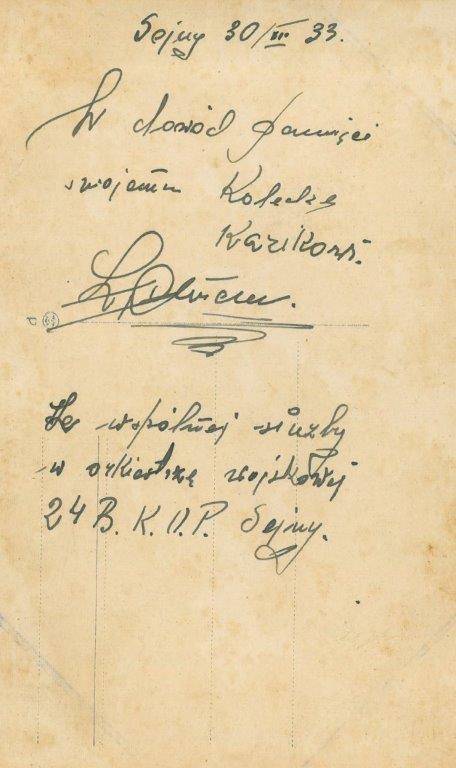 Sejny 30/III 33.
W dowód pamięci
swojemu Koledze
Kazikowi.
Ze wspólnej służby
w orkiestrze wojskowej
24 B. K. O. P. Sejny.